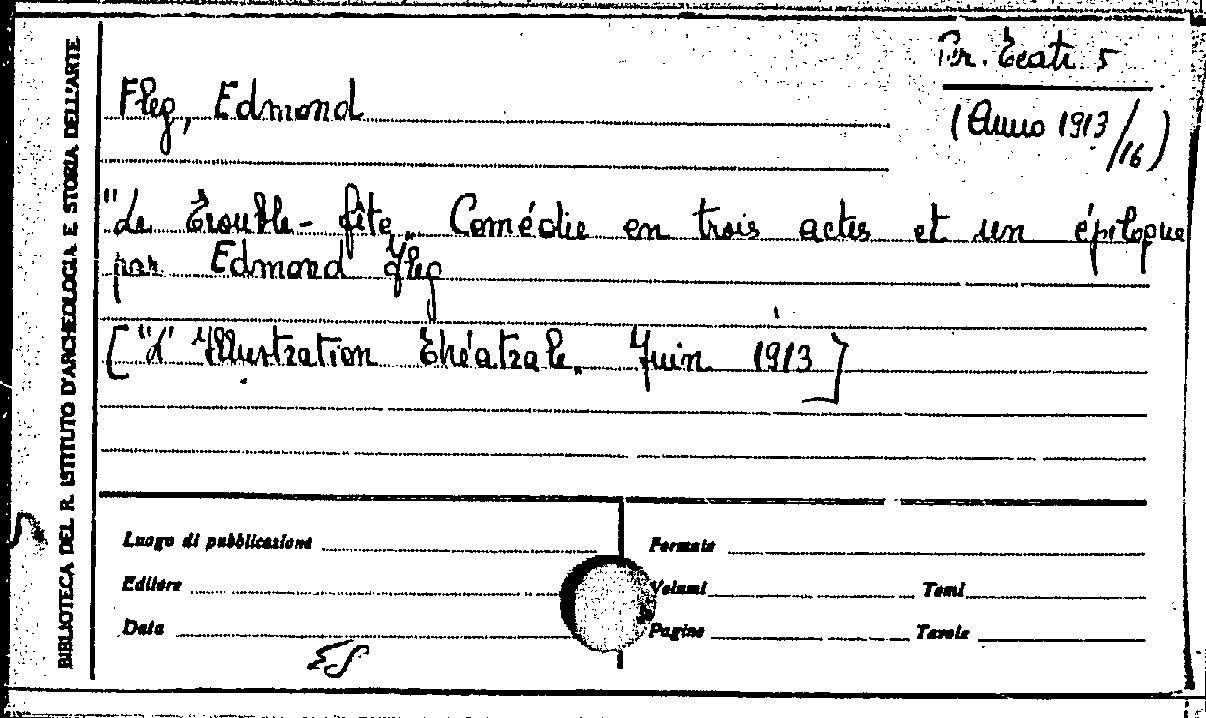 Per. Teatr. 5
Fleg, Edmond
(Anno 1913/16)
"Le Trouble-fête„ Comédie en trois actes et un épilogue
par Edmond Fleg
["L'Illustration Théatrale„ Juin 1913]
BIBLIOTECA DEL R. ISTITUTO D'ARCHEOLOGIA E STORIA DELL'ARTE
Luogo di pubblicazione
Formato
Editore
Volumi Tomi
Data
Pagine Tavole